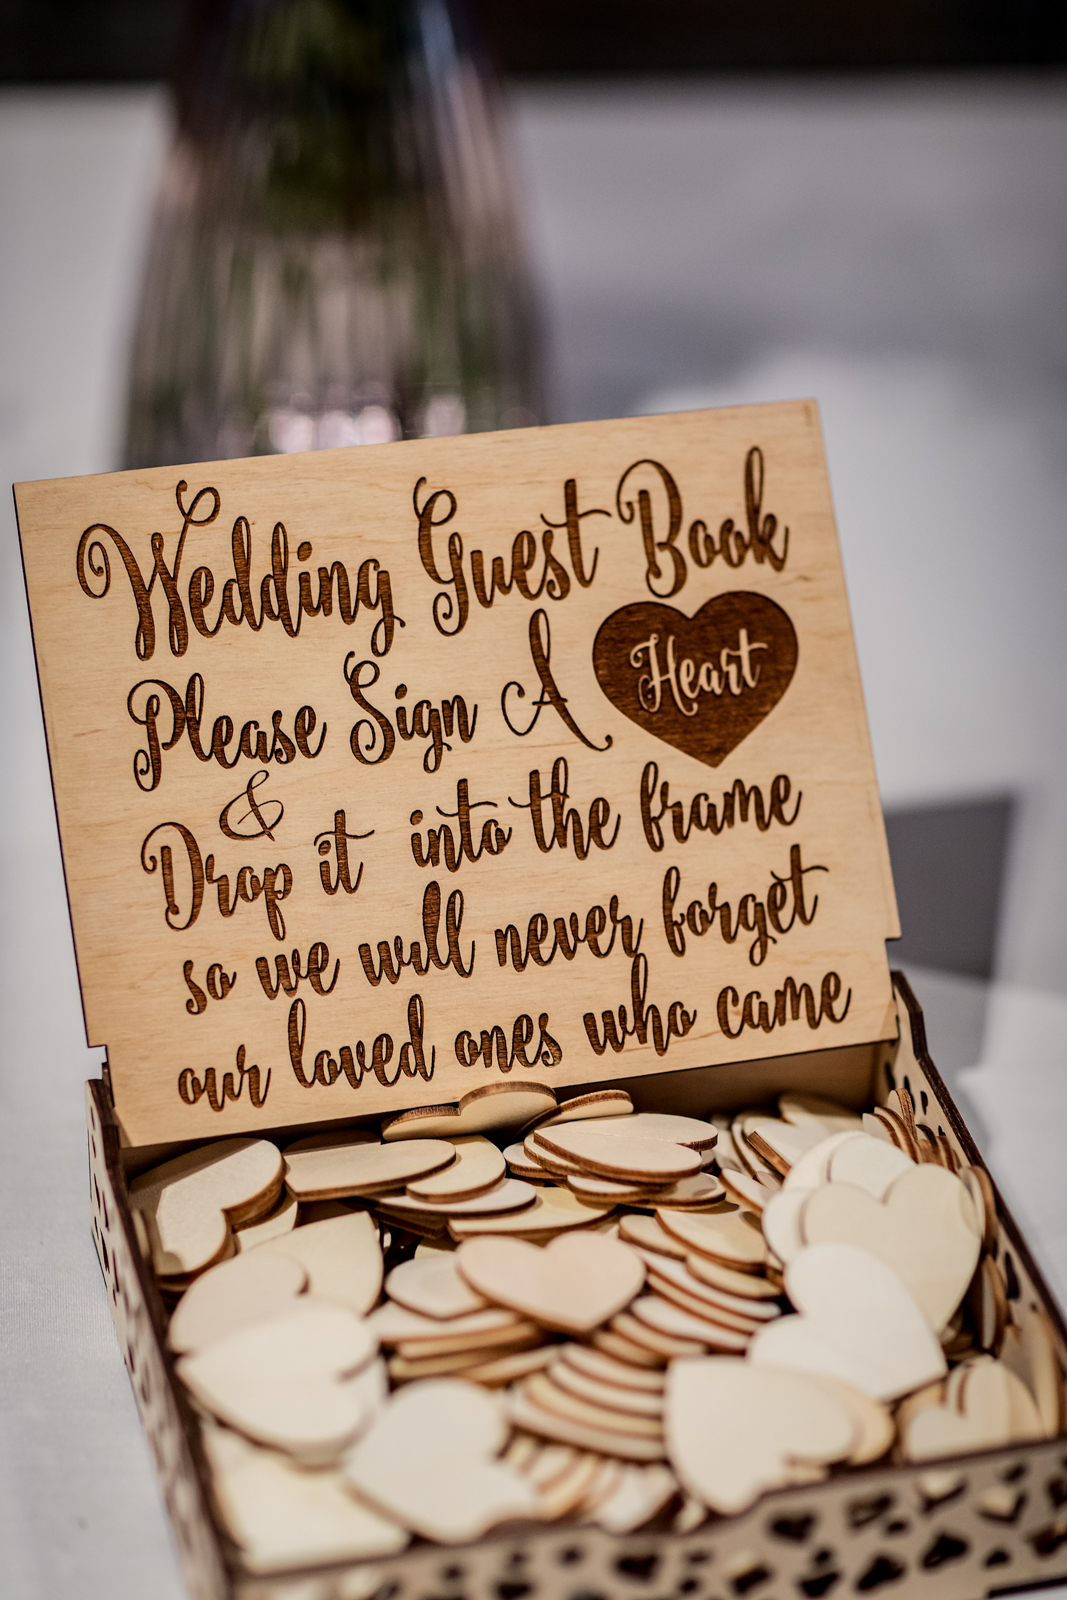 Wedding Guest Book
Please Sign A Heart
&
Drop it into the frame
so we will never forget
our loved ones who came